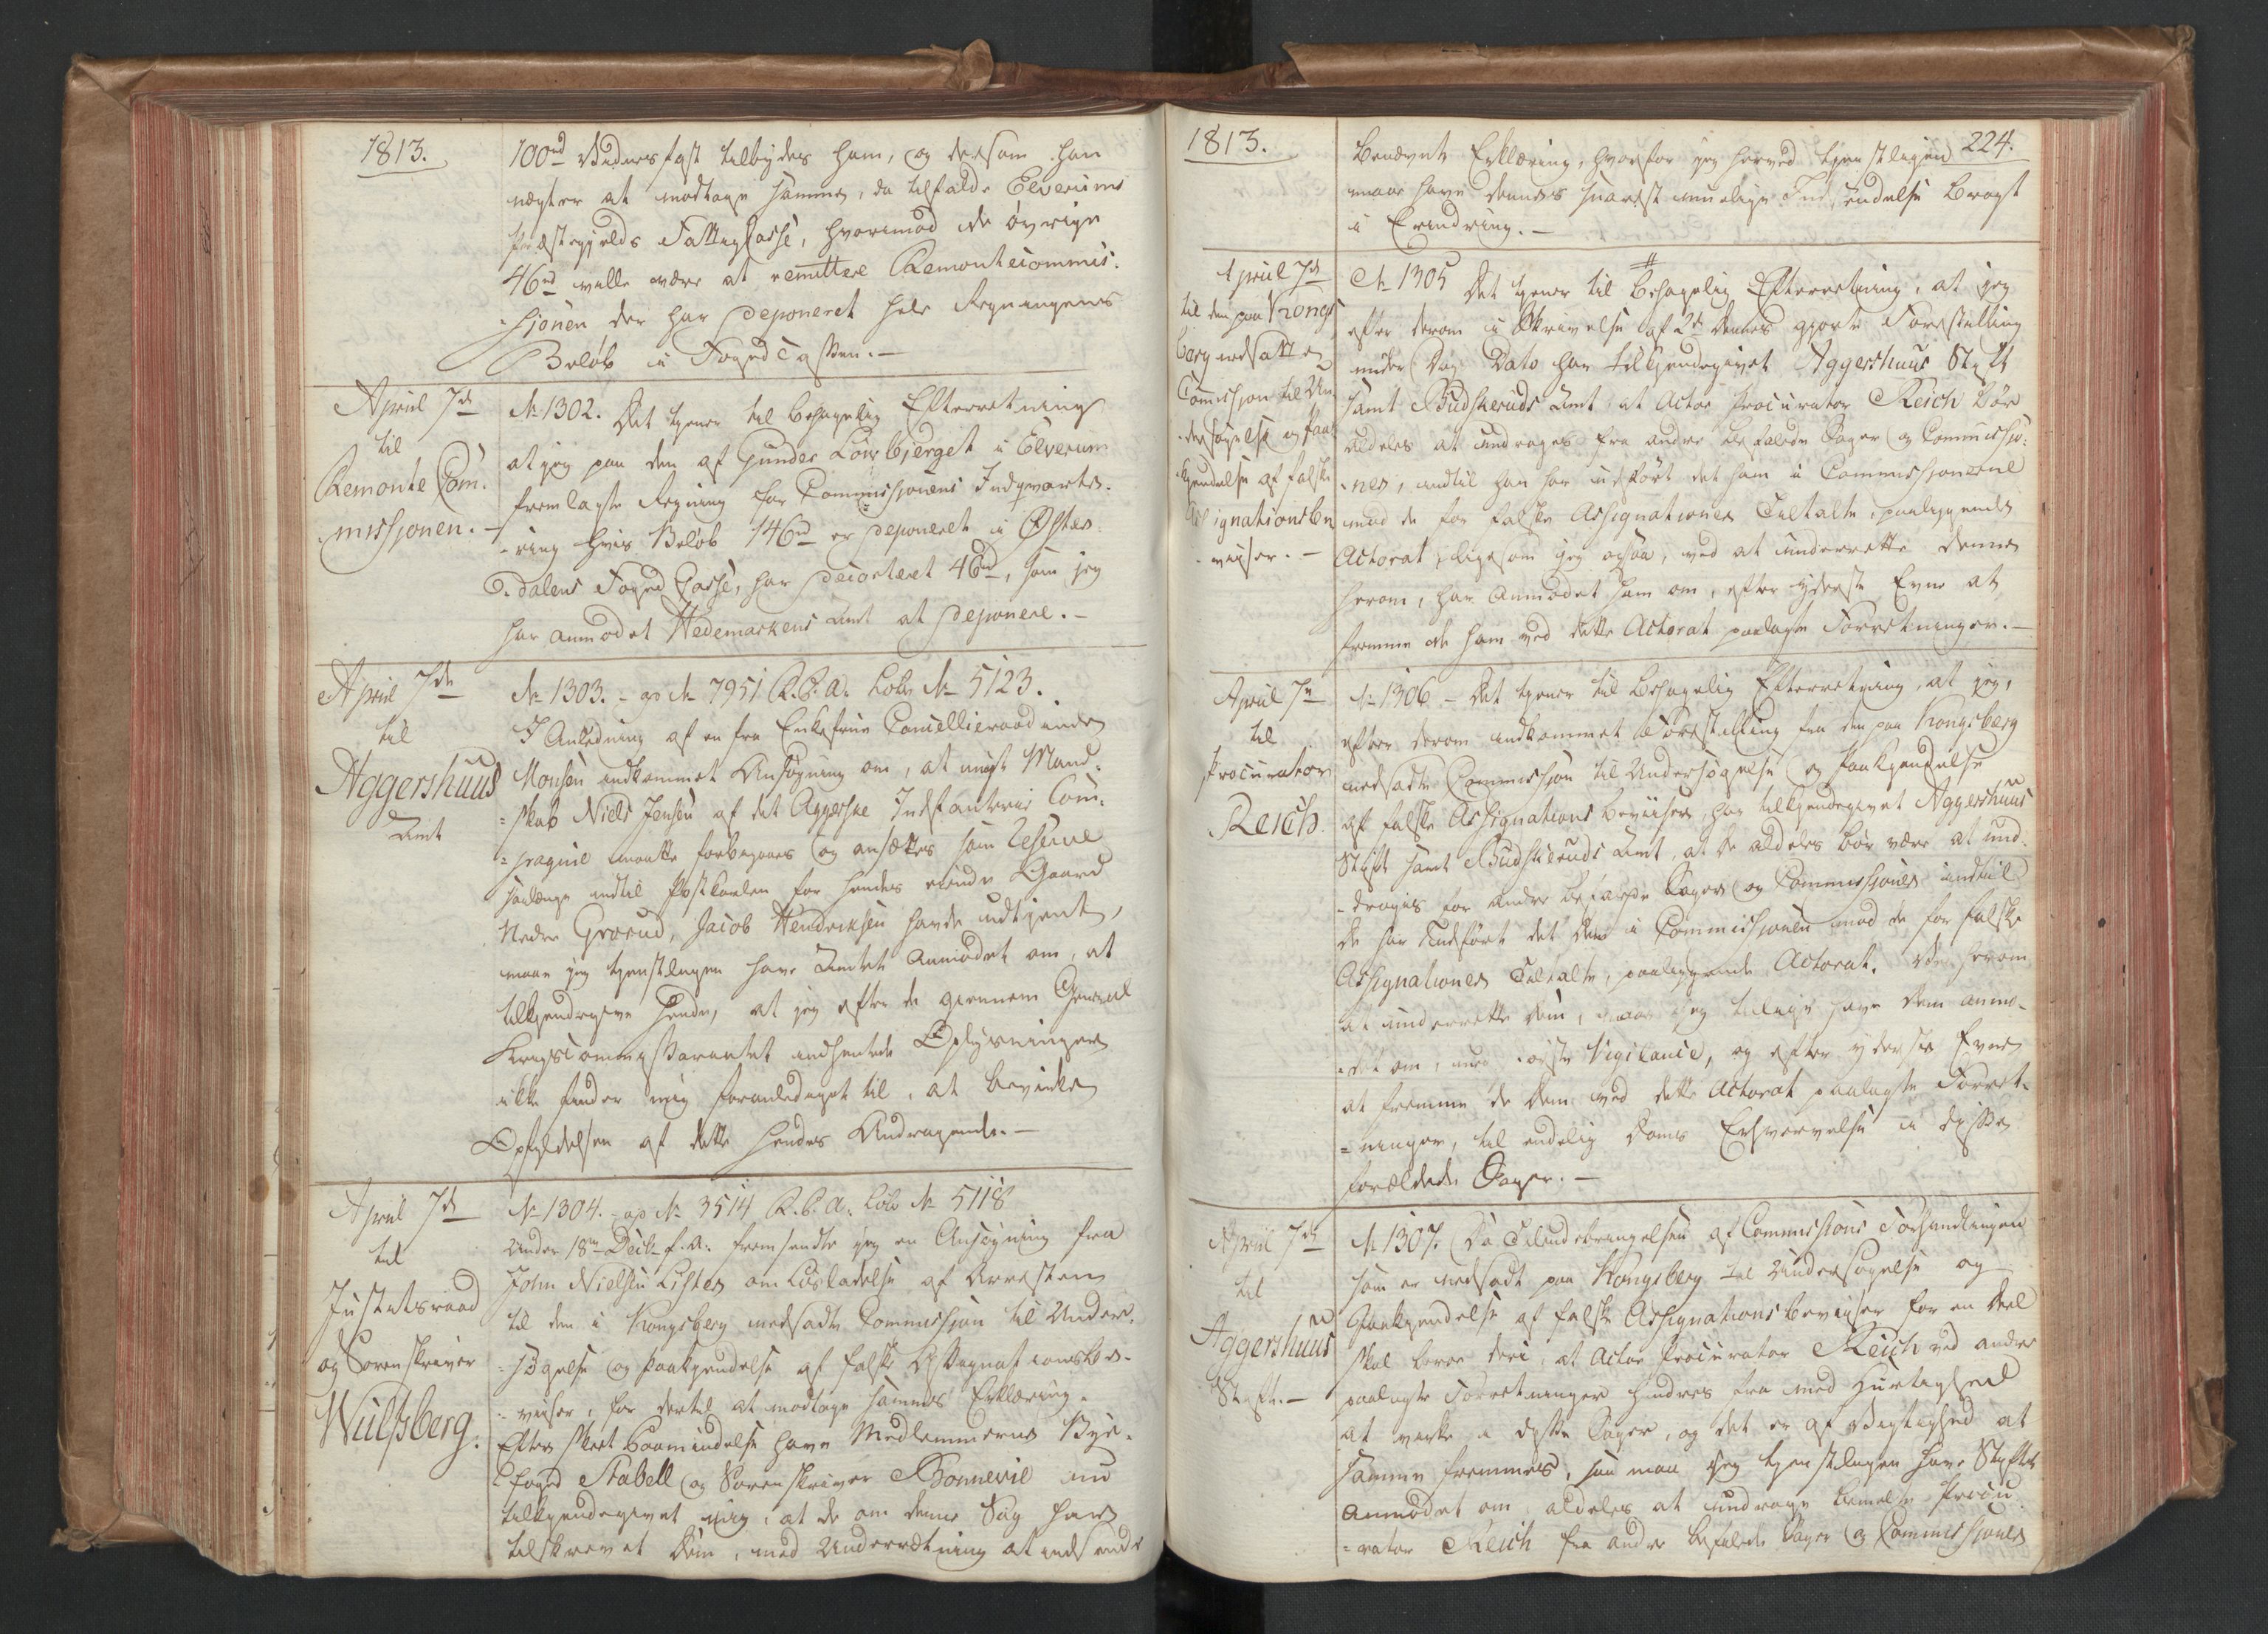 1813.
100rd Vidnesfast tilbydes ham, og dersom han
nægter at modtage samme, da tilfalde Elverums
Præstegjelds Fattigkasse, hvorimod de øvrige
46rd ville være at remittere Remontecommis-
sjonen der har deponeret hele Regningens
Beløb i Foged Cassen.—
April 7de
til
Remonte Com-
missjonen.
No 1302. Det tjener til behagelig Efterretning
at jeg paa den af Gunder Løvbjerget i Elverum
fremlagte Regning for Commissjonens Indqvarte-
-ring hvis Beløb 146rd er deponeret i Øster-
dalens Foged Casse, har decorteret 46rd, som jeg
har anmodet Hedemarkens Amt at deponere.—
April 7de
til
Aggershuus
Amt
No 1303. - ap No 7951 R.C.A. Lob No 5123.
I Anledning af en fra Enkefrue Cancellieraadinde
Monsen indkommet Ansøgning om, at nyt Mand-
-skab Niels Jensen af det Aggerske Infanterie Com-
-pagnie maatte forbigaaes og ansættes som Reserve
saalænge indtil Postkarlen for hendes eiende Gaard
Nedre Grorud, Jacob Hendriksen havde udtjent,
maae jeg tjenstligen have Amtet anmodet om, at
tilkjendegive Hende, at jeg efter de gjennem General
Krigscommissariatet indhentede Oplysninger
ikke finder mig foranlediget til, at bevirke
Opfyldelsen af dette hendes Andragende.—
April 7de
til
Justitsraad
og Sorenskriver
Wulfsberg.
No 1304. - ap No 3514 R.C.A. Lob No 5118
Under 18de Decbr f. A. fremsendte jeg en Ansøgning fra
John Nielsen Lister om Løsladelse af Arresten
til den i Kongsberg nedsadte Commissjon til Under-
-søgelse og Paakjendelse af falske Assignationsbe-
-viser, for dertil at modtage sammes Erklæring.
Efter skeet Paamindelse have Medlemmerne Bye-
foged Stabell og Sorenskriver Bonnevie nu
tilkjendegivet mig, at de om denne Sag have
tilskrevet Dem, med Underrætning at indsende
1813.
224.
benævnte Erklæring, hvorfor jeg herved tjenstligen
maae have dennes snarest muelige Indsendelse bragt
i Erindring.—
April 7de
til den paa Kongs
berg nedsatte
Comissjon til Un-
dersøgelse og Paa-
kjendelse af falske
Assignationsbe
-viser.—
No 1305 Det tjener til behagelig Efterretning, at jeg
efter derom i Skrivelse af 2de dennes gjorte Forestilling
under Dags Dato har tilkjendegivet Aggershuus Stift
samt Budskeruds Amt at Actor Procurator Reich bør
aldeles at undrages fra andre befalede Sager og Commissjo-
-ner, indtil han har udført det ham i Commissjonerne
mod de for falske Assignationer Tiltalte, paaliggende
Actorat, ligesom jeg ogsaa, ved at underrette denne
herom, har anmodet ham om, efter yderste Evne at
fremme de ham ved dette Actorat paalagte Forretninger.—
April 7de
til
Procurator
Reich.
No 1306 - Det tjener til behagelig Efterretning, at jeg,
efter derom indkommet Forestilling fra den paa Kongsberg
nedsadte Commissjon til Undersøgelse og Paakjendelse
af falske Assignations beviiser, har tilkjendegivet Aggershuus
Stift samt Budskeruds Amt, at De aldeles bør være at und-
-drages for andre befalede Sager og Commissjoner indtil
De har Udført det Dem i Commissjonen mod de for falske
Assignationer Tiltalte, paaliggende Actorat. Ved herom
at underrette Dem, maae jeg tillige have Dem anmo-
-det om, med største Vigilance, og efter yderste Evne
at fremme de Dem ved dette Actorat paalagte Forret-
-ninger, til endelig Doms Erhvervelse i disse
forældede Sager.—
April 7de
til
Aggershuus
Stift.—
No 1307. Da Tilendebringelsen af Commissions Forhandlingen
som er nedsadt paa Kongsberg til Undersøgelse og
Paakjendelse af falske Assignationsbeviiser for en Deel
skal beroe deri, at Actor Procurator Reich ved andre
paalagte Forretninger hindres fra med Hurtighed
at virke i disse Sager, og det er af Vigtighed at
samme fremmes, saa maa jeg tjenstligen have Stiftet
anmodet om aldeles at undrage bemelte Procu-
-rator Reich fra andre befalede Sager og Commissjoner